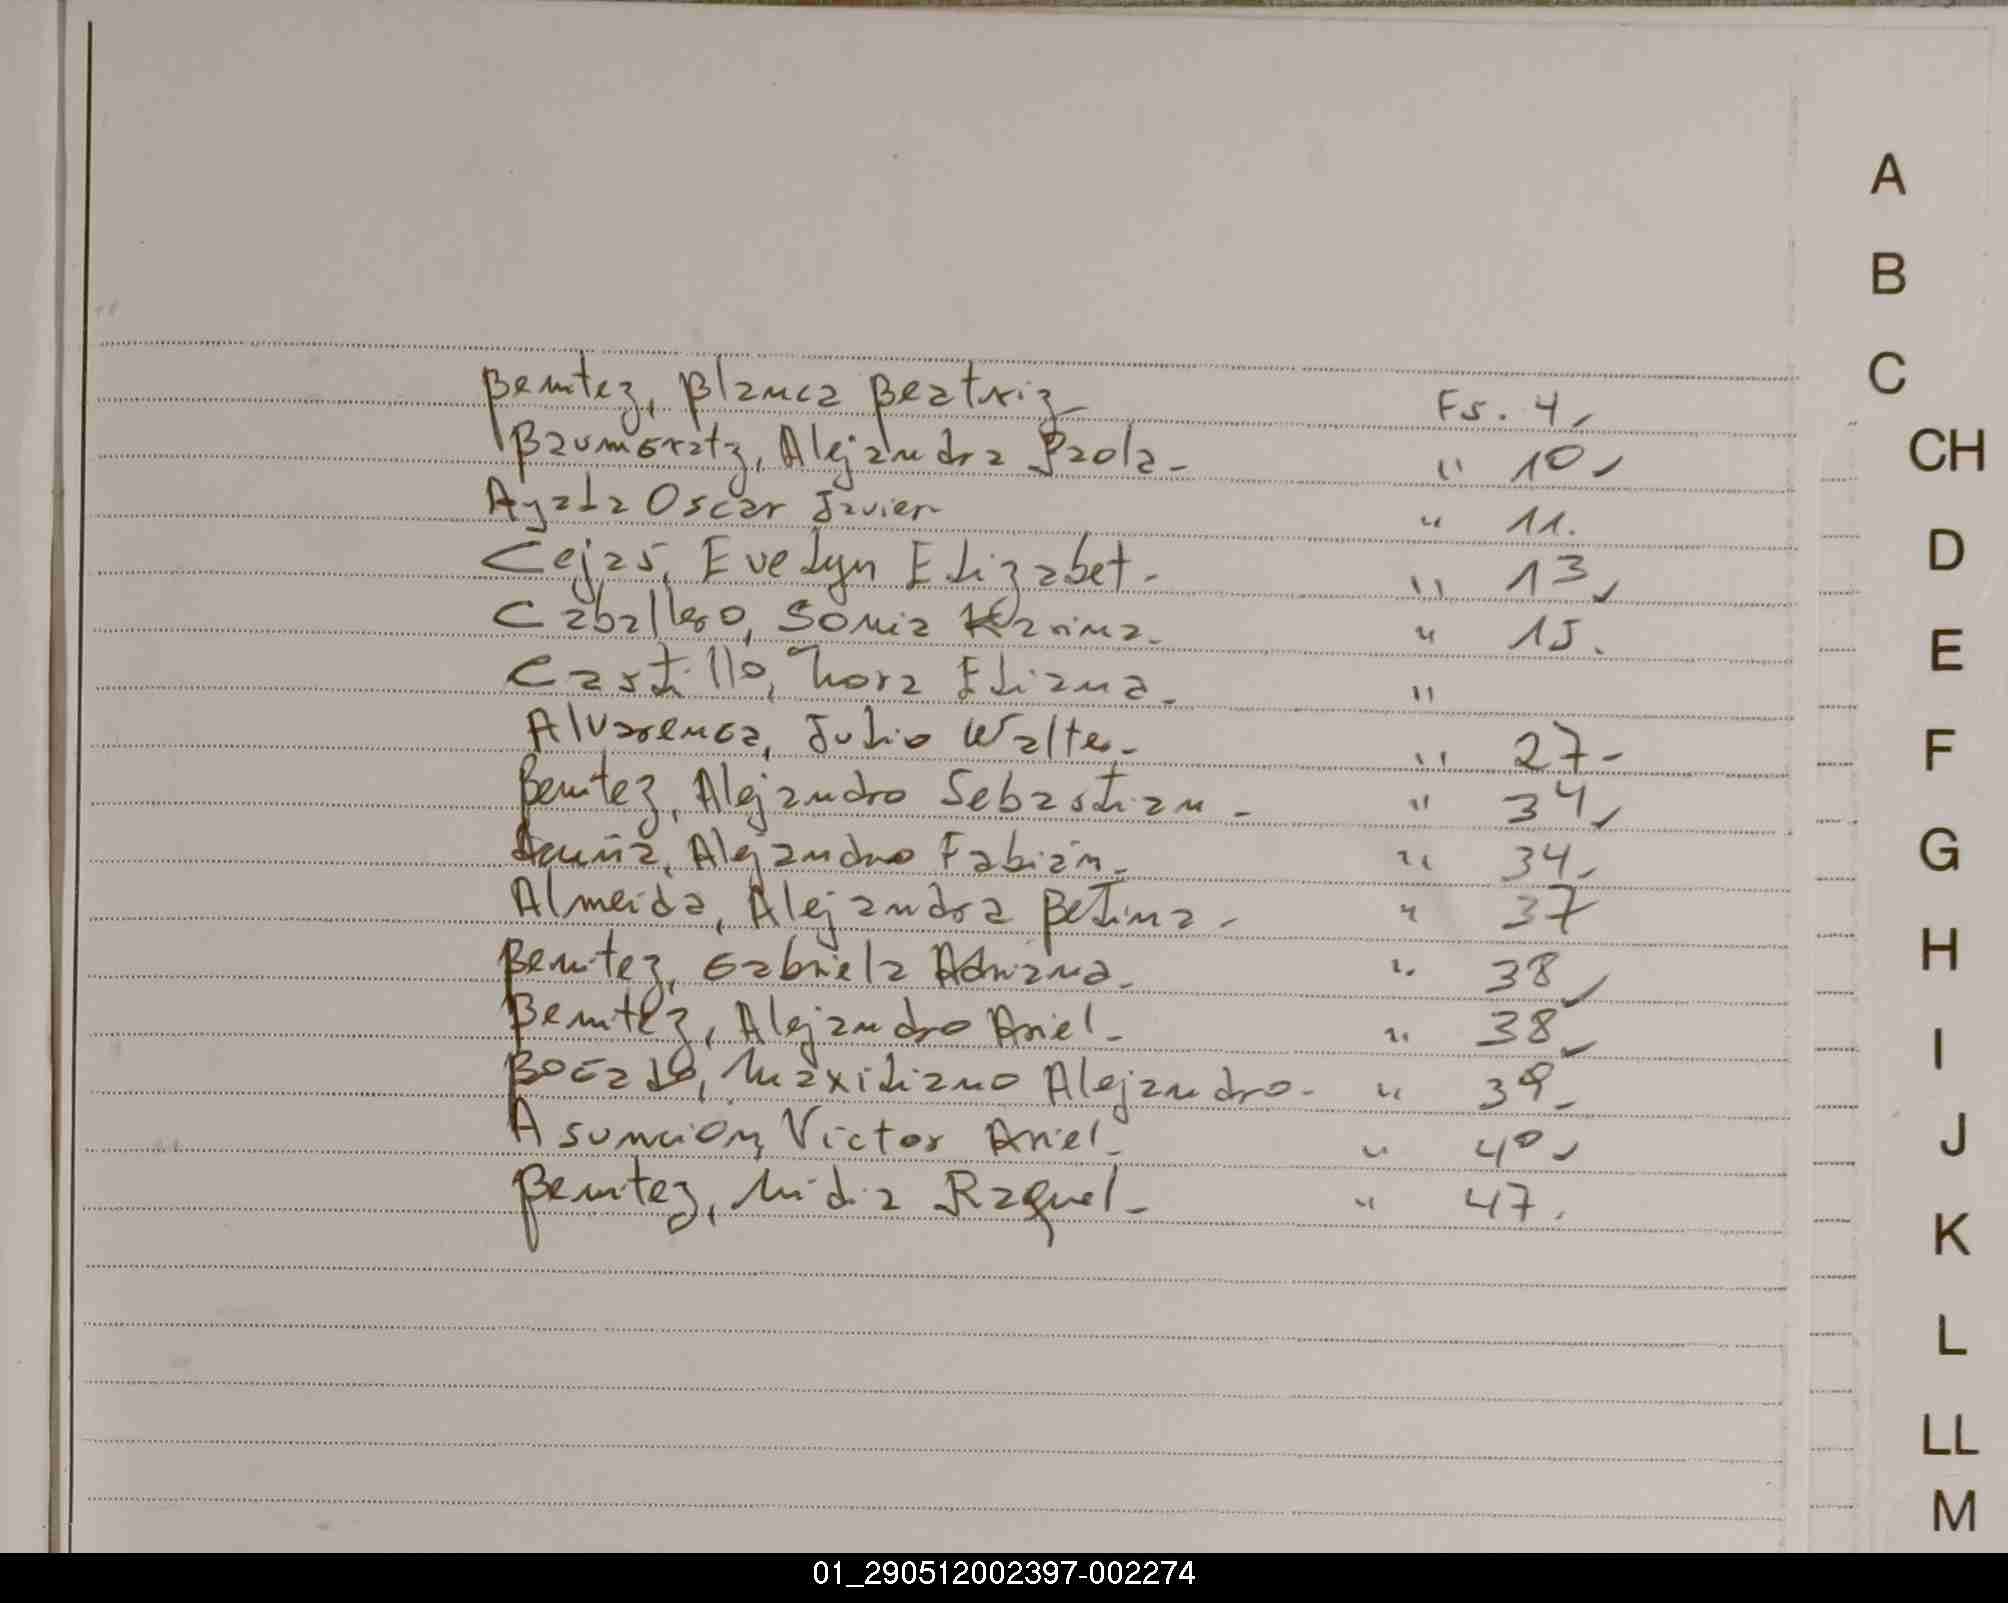 A
B
C
Benitez, Blanca Beatriz Fs. 4
Baumgratz, Alejandra Paola - " 10
CH
Ayala Oscar Javier " 11.
Cejas, Evelyn Elizabet - " 13
D
Caballero, Sonia Karina. " 15.
E
Castillo, Nora Eliana. "
Alvarenga, Julio Walter - " 27 -
F
Benitez, Alejandro Sebastian - " 34
Acuña, Alejandro Fabián - " 34
G
Almeida, Alejandra Betina - " 37
Benitez, Gabriela Adriana - " 38
H
Benitez, Alejandro Ariel - " 38
I
Bocado, Maximiliano Alejandro - " 39 -
Asunción, Victor Ariel - " 40
J
Benitez, Lidia Raquel - " 47.
K
L
LL
M
01_290512002397-002274